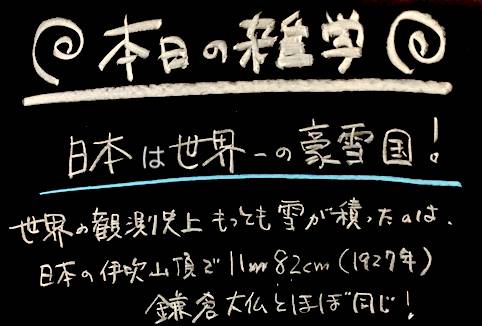 本日の雑学
日本は世界一の豪雪国!
世界の観測史上 もっとも雪が積ったのは、
日本の伊吹山頂で11m82cm(1927年)
鎌倉大仏とほぼ同じ!